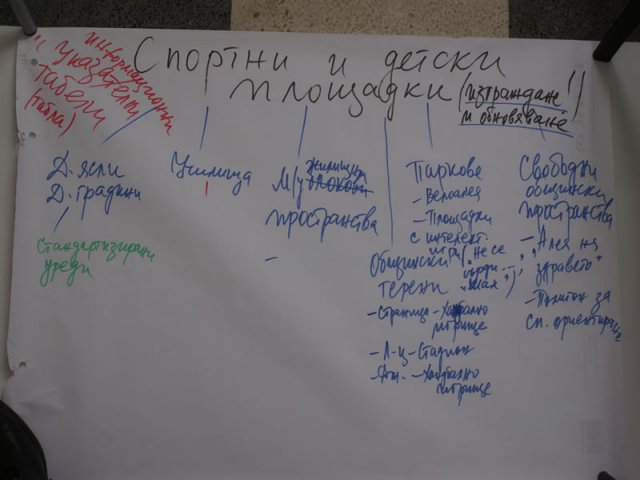 информационни
" указателни
табели
(табла)
Спортни и детски
площадки (изграждане
и обновяване !)
Д. ясли
Д. градини
Стандартизирани
уреди
Училища
жилищни
М/у блокови
пространства
-
Общински
терени
- Страница - Хандбално
игрище
- Л-ц - Стадион
- Ат. - Хандбално
игрище
Паркове
- Велоалея
- Площадки
с интелект.
игри ("Не се
сърди...",
"шах")
Свободни
общински
пространства
- "Алея на
здравето"
- Полигон за
сп. ориентиране